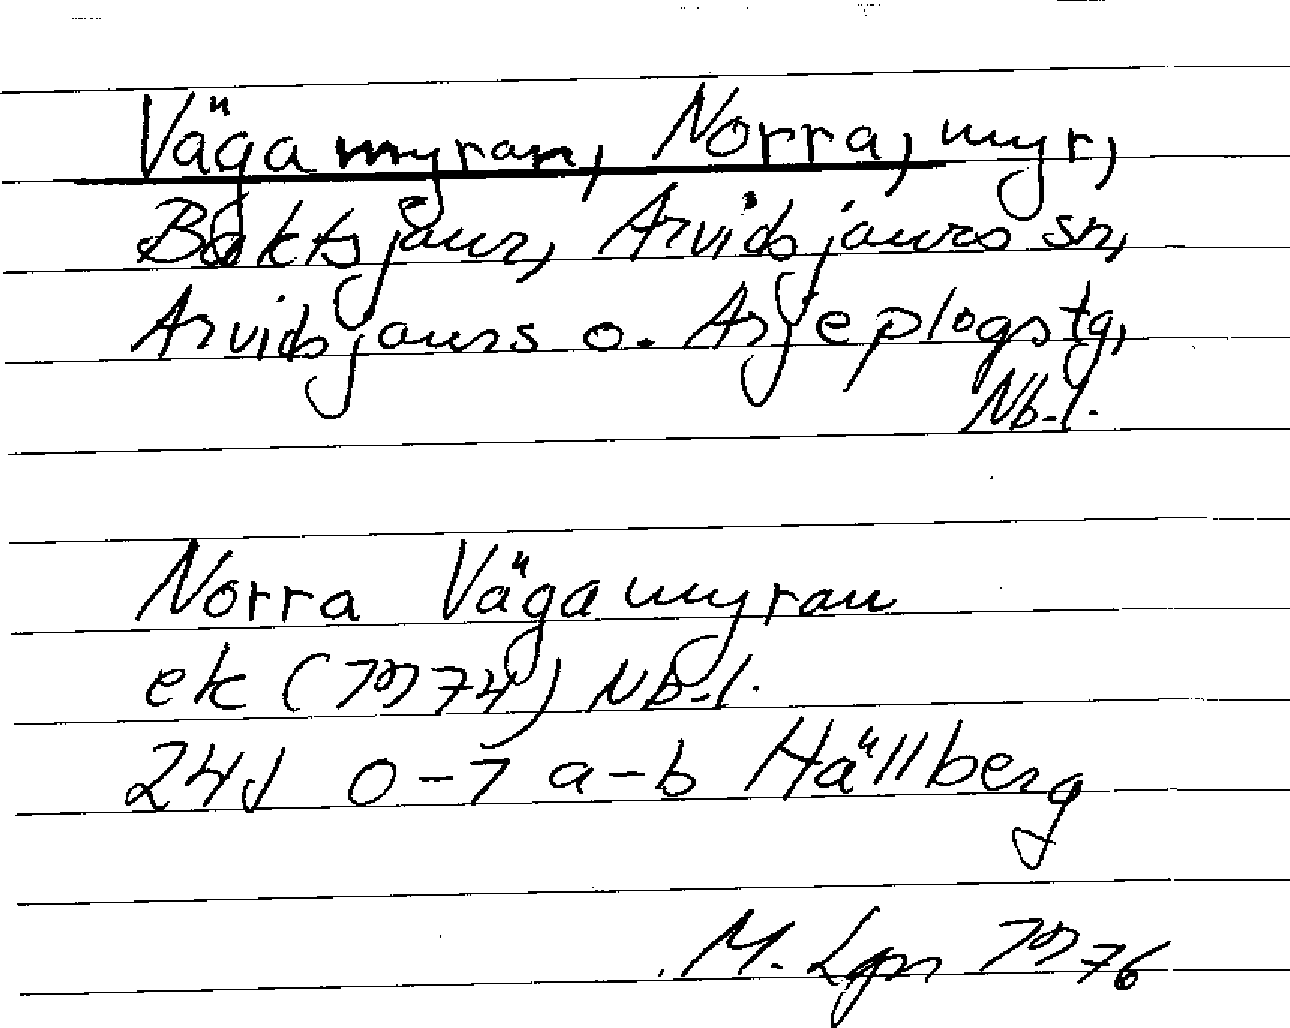 Vägamyran, Norra, myr,
Baktsjaur, Arvidsjaurs sn,
Arvidsjaurs o. Arjeplogs tg,
Nb.l.
Norra Vägamyran
ek (1974) Nb.l.
24J 0-7 a-b Hällberg
M. Lgn 1976